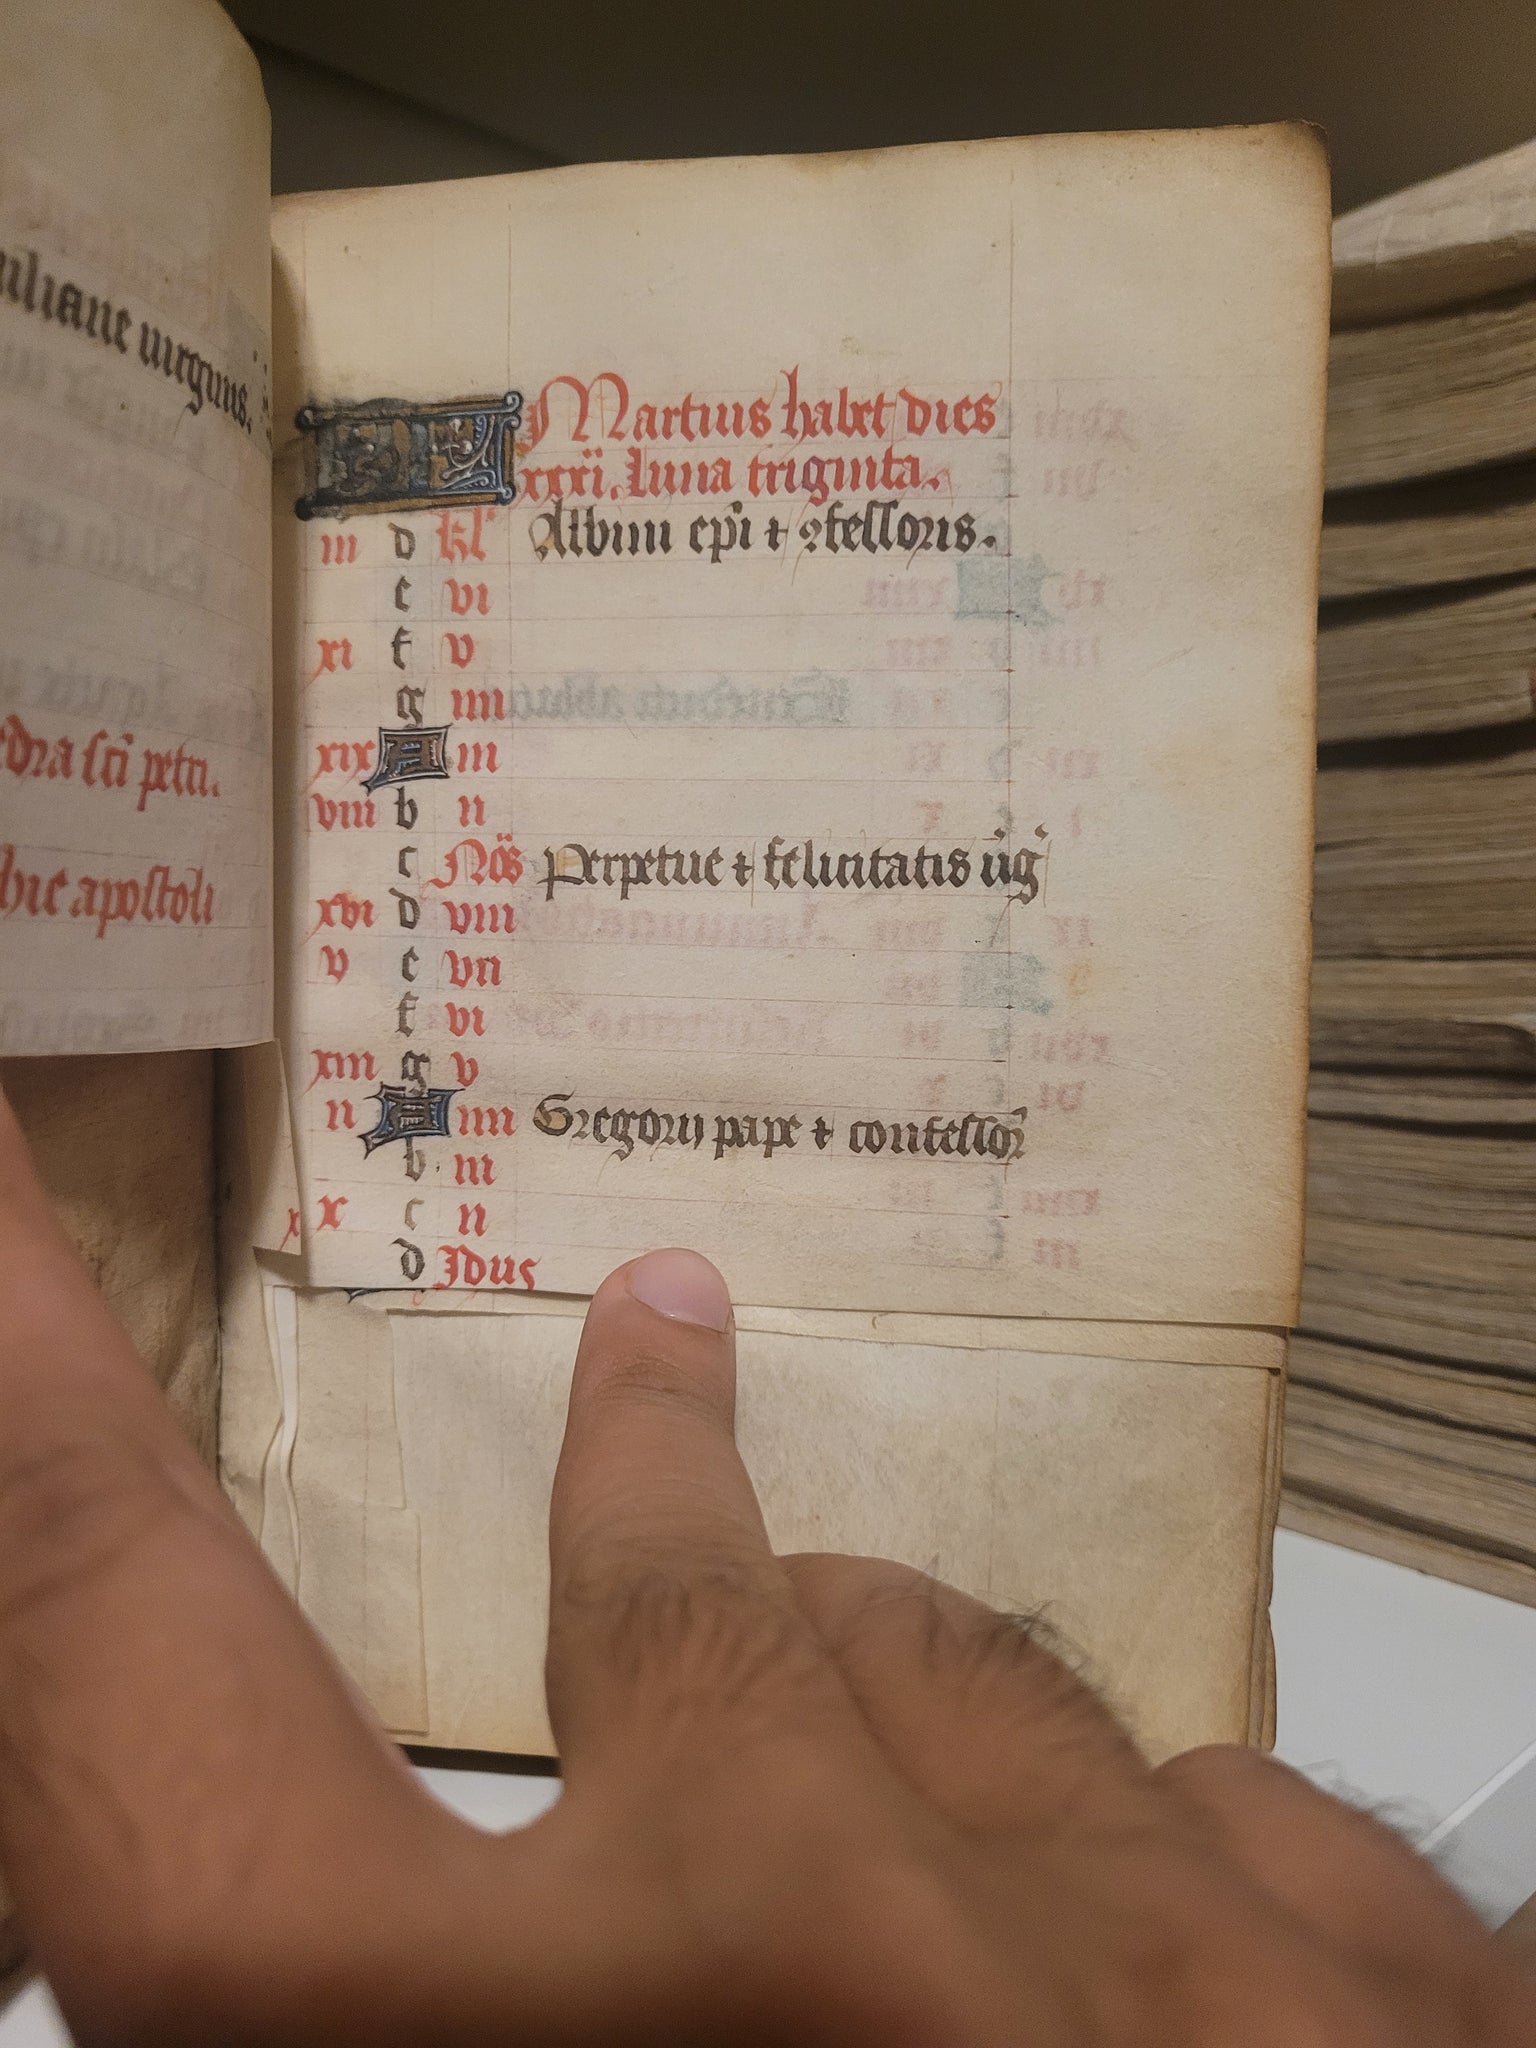 iliane uirginis.
edra sci petri.
hie apostoli
KL Martius habet dies
xxxi. luna triginta.
iii d kl Albini epi ⁊ ꝯfessoris.
e vi
xi f v
g iiii
xix A iii
viii b ii
c Nõs Perpetue ⁊ felicitatis ūg
xvi d viii
v e vii
f vi
xiii g v
ii A iiii Gregorij pape ⁊ confessoꝝ
b iii
x c ii
d Idus
x